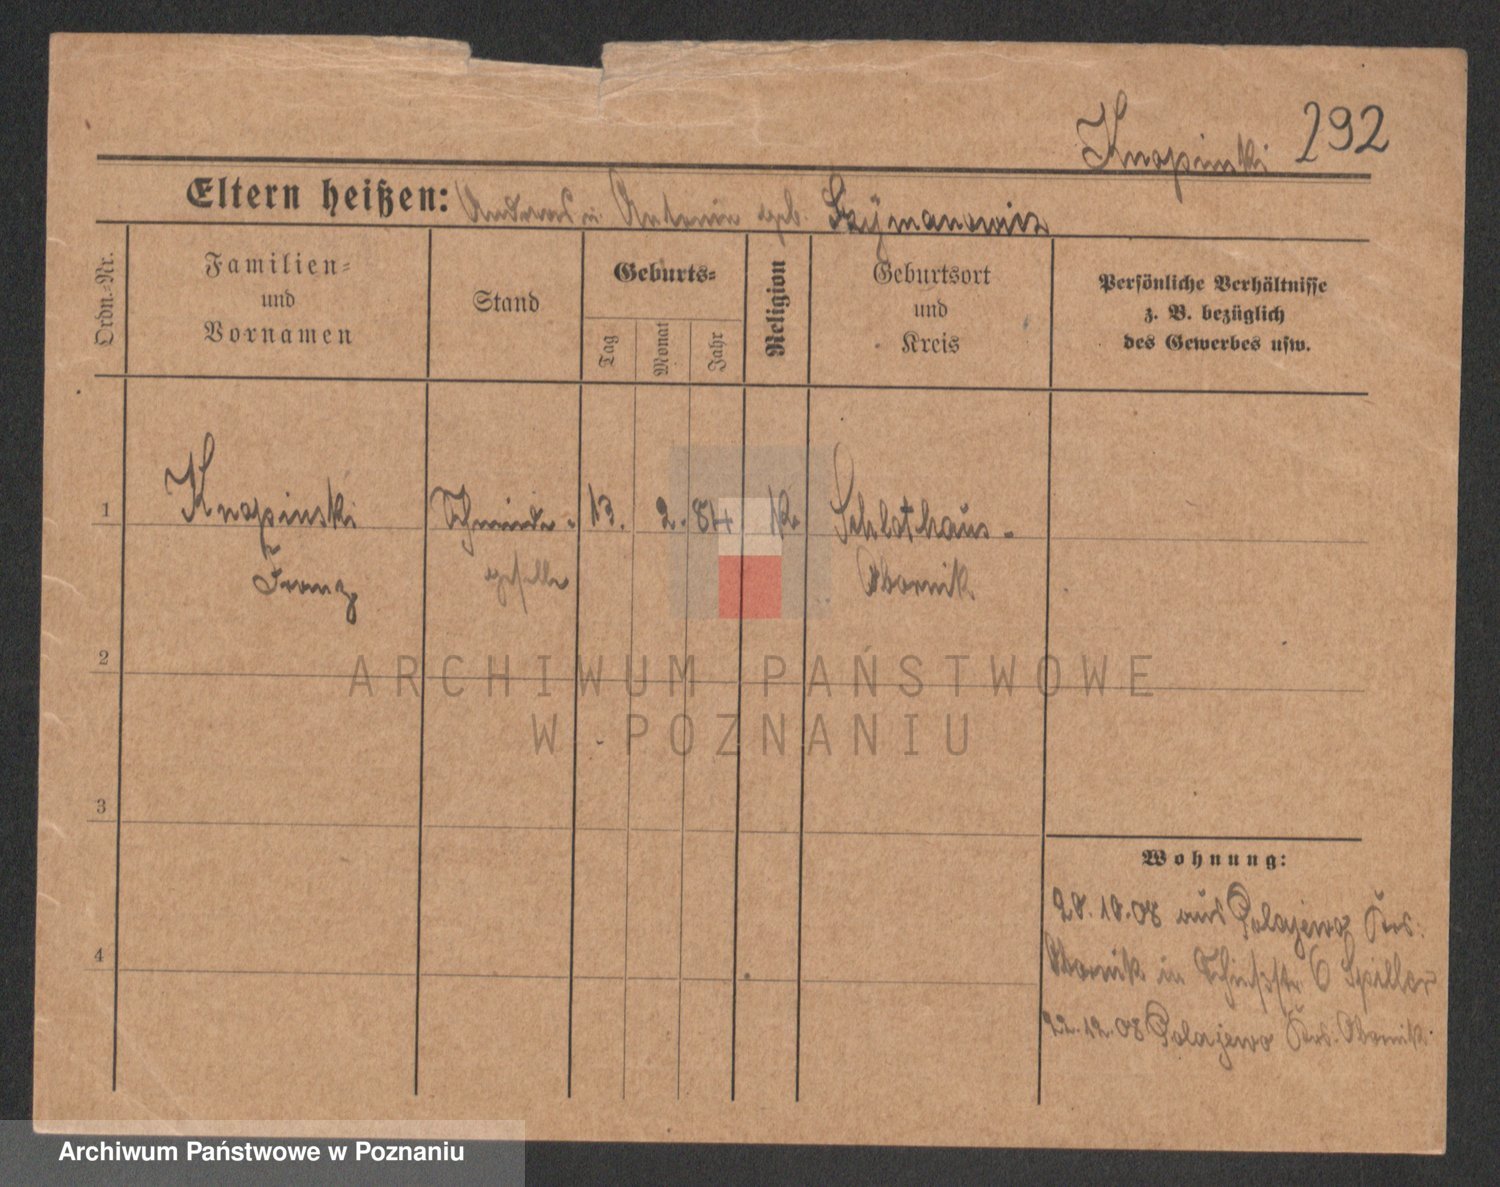 Knapinski 292
Eltern heißen: Andreas u. Antonie geb. Szymanowicz
Ordn.-Nr.
Familien-
und
Vornamen
Stand
Geburts-
Tag
Monat
Jahr
Religion
Geburtsort
und
Kreis
Persönliche Verhältnisse
z. B. bezüglich
des Gewerbes usw.
1 Knapinski Schmiede- 13. 2. 84 K. Schlothaus-
Franz geselle Obornik
2
ARCHIWUM PAŃSTWOWE
W POZNANIU
3
4
Wohnung:
28.10.08 aus Polajewo Krs.
Obornik in Schiesstr. 6
22.12.08 Polajewo Krs. Obornik
Archiwum Państwowe w Poznaniu